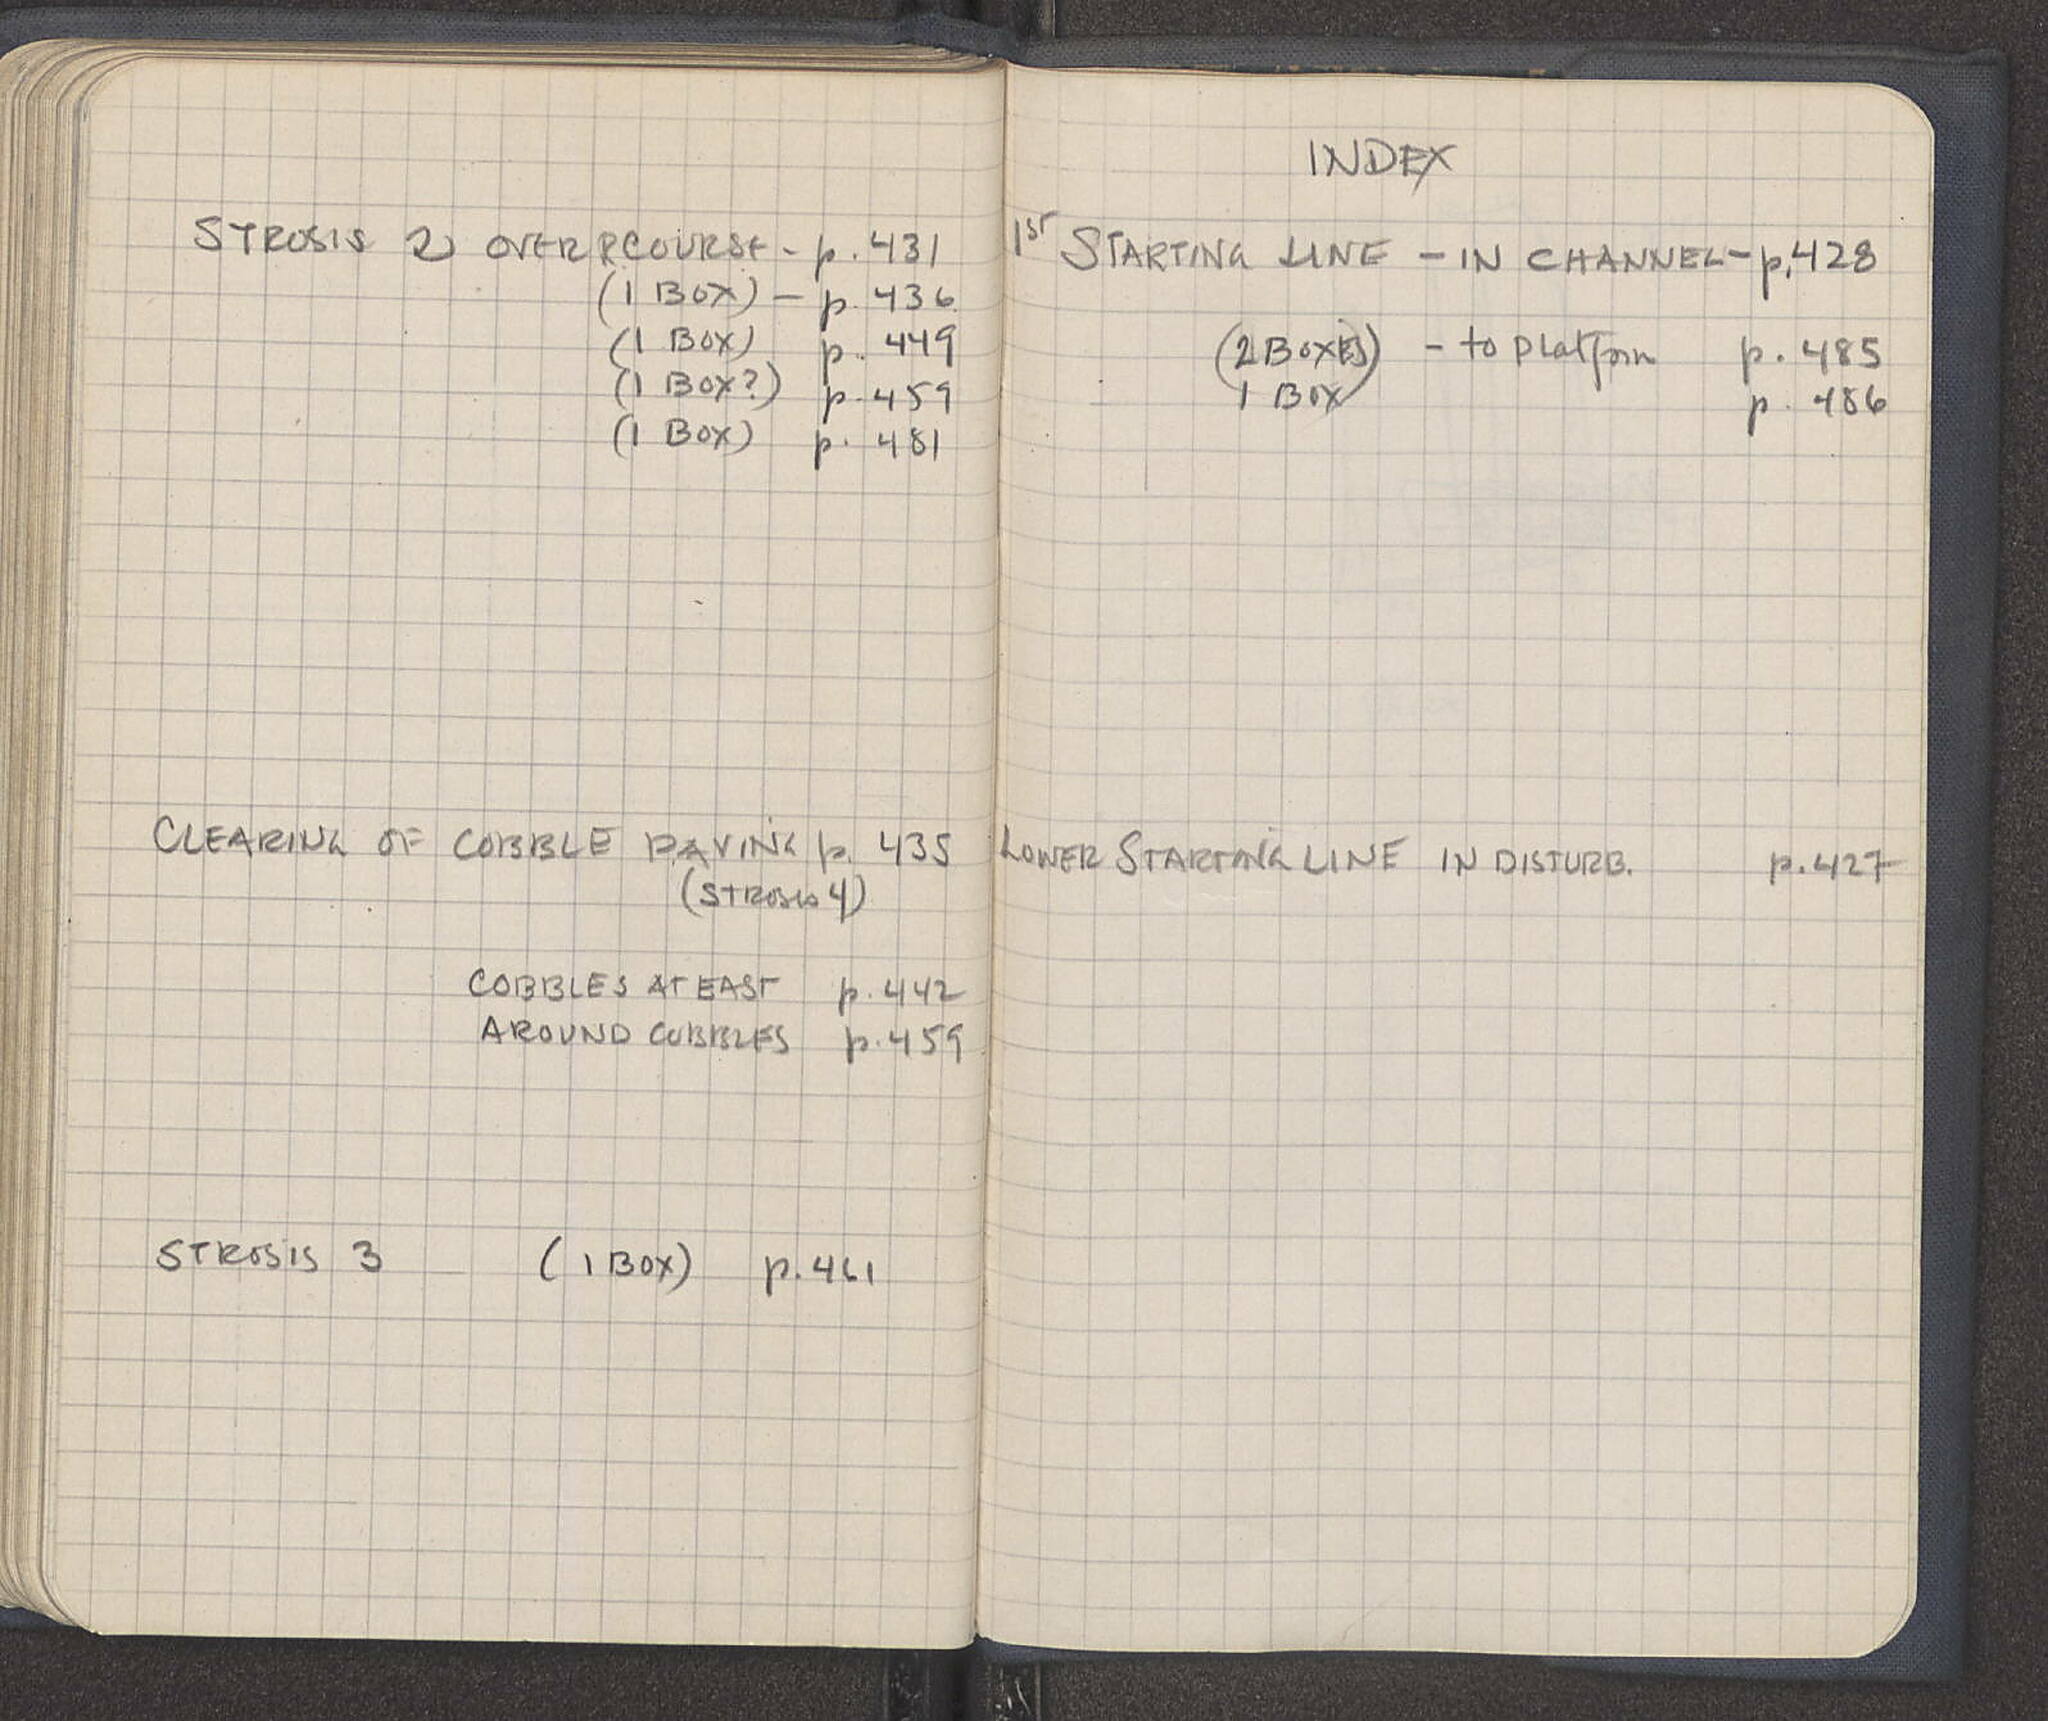 STROSIS 2 OVER RCOURSE - p. 431
(1 BOX) - p. 436
(1 BOX) p. 449
(1 BOX?) p. 459
(1 BOX) p. 481
CLEARING OF COBBLE PAVING p. 435
(STROSIS 4)
COBBLES AT EAST p. 442
AROUND COBBLES p. 459
STROSIS 3 (1 BOX) p. 461
INDEX
1ST STARTING LINE - IN CHANNEL - p. 428
(2 BOXES) - to platform p. 485
1 BOX p. 486
LOWER STARTING LINE IN DISTURB. p. 427